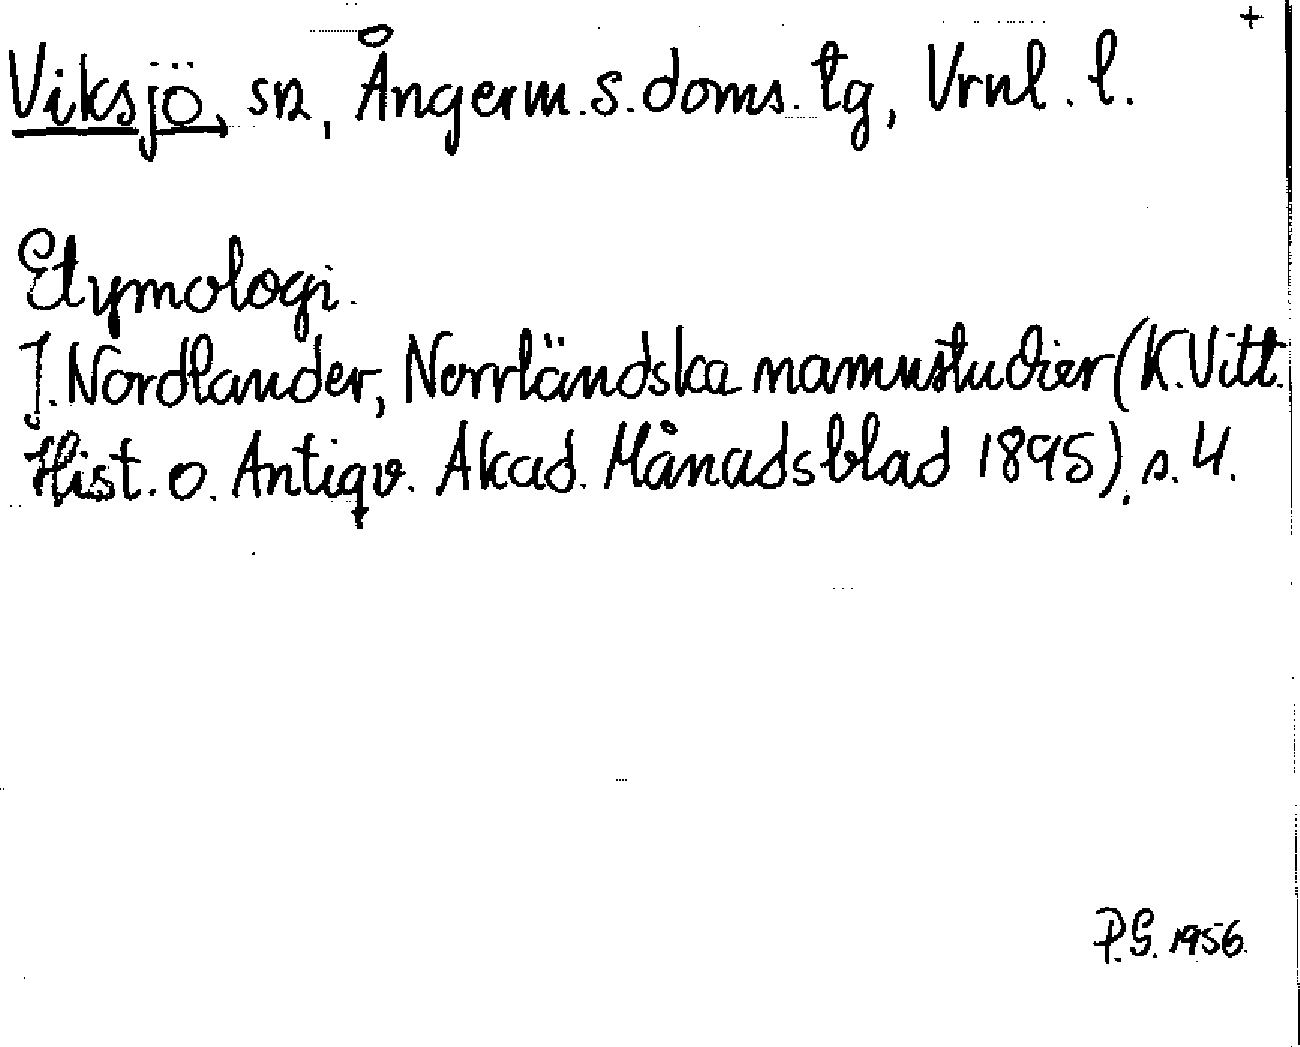 +
Viksjö, sn, Ångerm. s. doms. tg, Vrnl. l.
Etymologi.
J. Nordlander, Norrländska namnstudier (K. Vitt.
Hist. o. Antiqv. Akad. Månadsblad 1895), s. 4.
P.G. 1956.